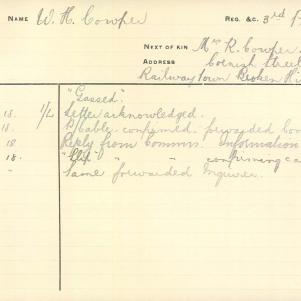 NAME W. H. Cowper REG. &C. 3rd
NEXT OF KIN Mrs R. Cowper
ADDRESS Cornish Street
Railway Town Broken Hi
"Gassed".
18. 1/L Letter acknowledged.
18. B/Cable confirmed. forwarded
18 Reply from Comms. Information
18. " " confirming ca
" Same forwarded Inquirer.